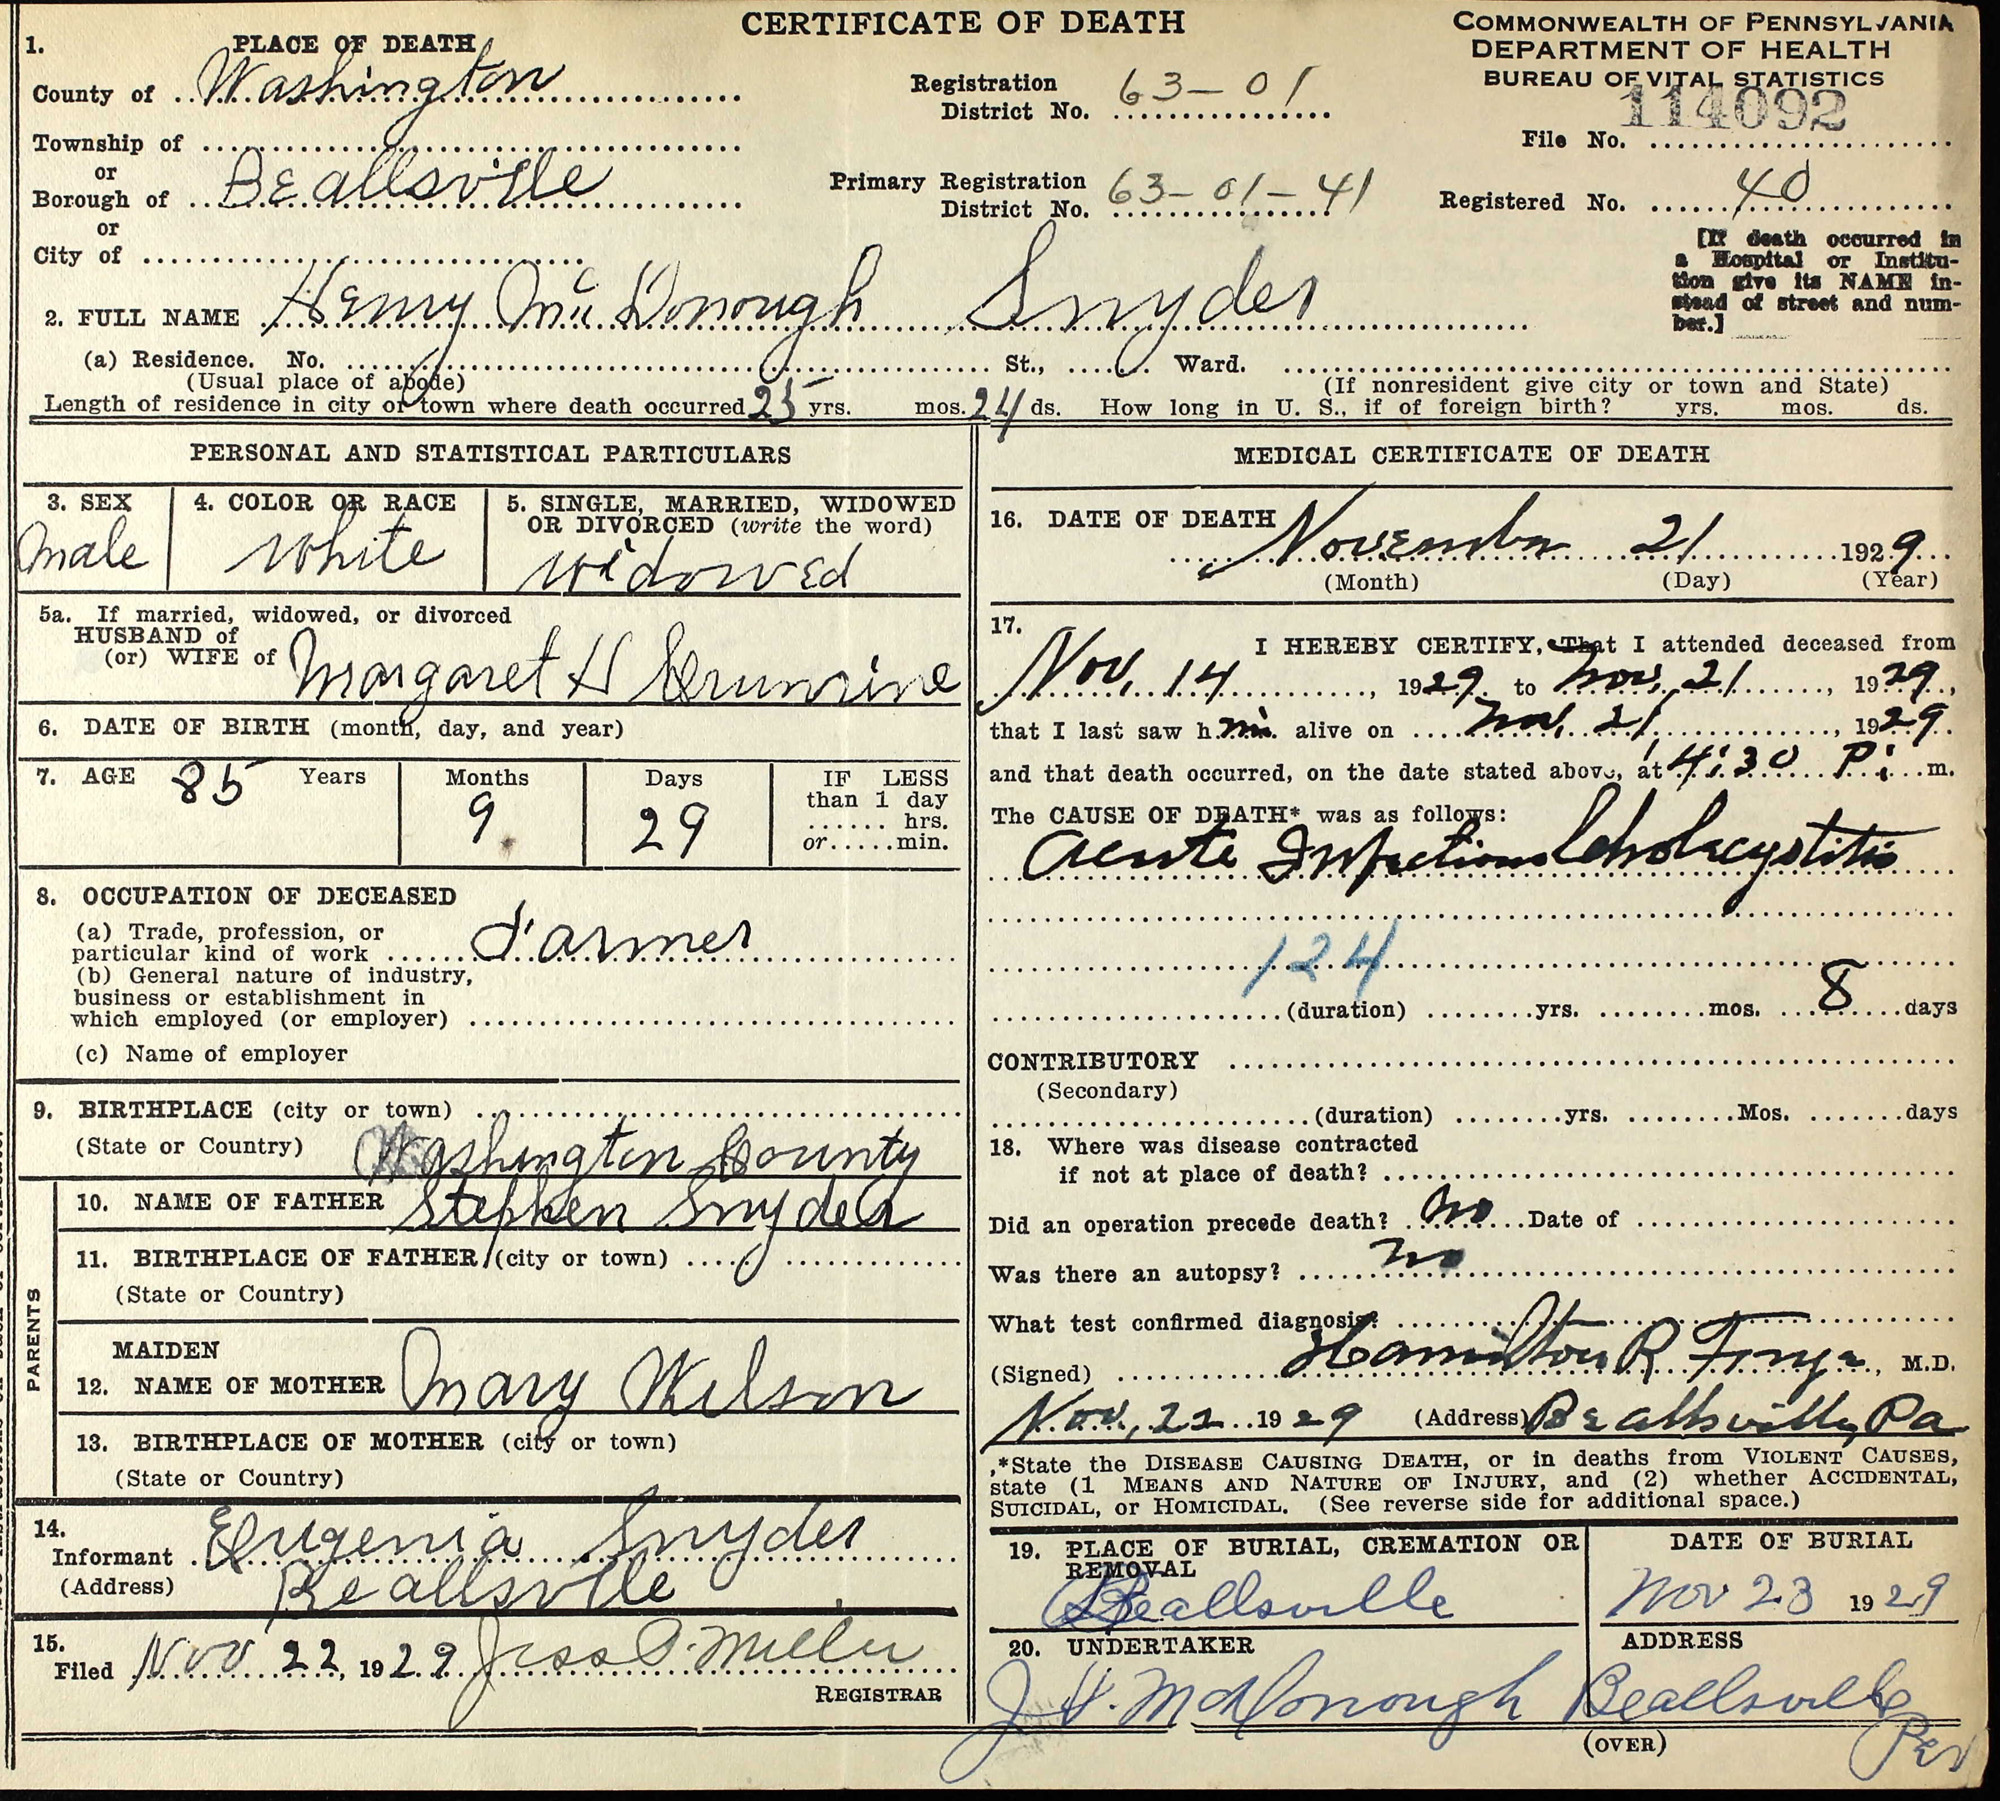 CERTIFICATE OF DEATH
COMMONWEALTH OF PENNSYLVANIA
DEPARTMENT OF HEALTH
BUREAU OF VITAL STATISTICS
114092
File No.
Registered No. 40
[If death occurred in
a Hospital or Institu-
tion give its NAME in-
stead of street and num-
ber.]
1. PLACE OF DEATH
County of Washington
Registration
District No. 63-01
Township of
or
Borough of Beallsville
Primary Registration
District No. 63-01-41
or
City of
2. FULL NAME Henry McDonough Snyder
(a) Residence. No. St., Ward.
(Usual place of abode) (If nonresident give city or town and State)
Length of residence in city or town where death occurred 25 yrs. mos. 24 ds. How long in U. S., if of foreign birth? yrs. mos. ds.
PERSONAL AND STATISTICAL PARTICULARS
3. SEX
Male
4. COLOR OR RACE
White
5. SINGLE, MARRIED, WIDOWED
OR DIVORCED (write the word)
Widowed
5a. If married, widowed, or divorced
HUSBAND of
(or) WIFE of Margaret H Crumrine
6. DATE OF BIRTH (month, day, and year)
7. AGE 85 Years
Months
9
Days
29
IF LESS
than 1 day
hrs.
or min.
8. OCCUPATION OF DECEASED
(a) Trade, profession, or
particular kind of work Farmer
(b) General nature of industry,
business or establishment in
which employed (or employer)
(c) Name of employer
9. BIRTHPLACE (city or town)
(State or Country) Washington County
PARENTS
10. NAME OF FATHER Stephen Snyder
11. BIRTHPLACE OF FATHER (city or town)
(State or Country)
MAIDEN
12. NAME OF MOTHER Mary Wilson
13. BIRTHPLACE OF MOTHER (city or town)
(State or Country)
14.
Informant Eugenia Snyder
(Address) Beallsville
15.
Filed Nov 22, 1929 Jess P. Miller
REGISTRAR
MEDICAL CERTIFICATE OF DEATH
16. DATE OF DEATH
November 21 1929
(Month) (Day) (Year)
17.
I HEREBY CERTIFY, That I attended deceased from
Nov, 14, 1929 to Nov, 21, 1929,
that I last saw him alive on Nov, 21, 1929
and that death occurred, on the date stated above, at 4:30 P. m.
The CAUSE OF DEATH* was as follows:
Acute Infectious Cholecystitis
124
(duration) yrs. mos. 8 days
CONTRIBUTORY
(Secondary)
(duration) yrs. Mos. days
18. Where was disease contracted
if not at place of death?
Did an operation precede death? No Date of
Was there an autopsy? no
What test confirmed diagnosis?
(Signed) Hamilton R, M.D.
Nov, 22 1929 (Address) Beallsville, Pa
*State the DISEASE CAUSING DEATH, or in deaths from VIOLENT CAUSES,
state (1 MEANS AND NATURE OF INJURY, and (2) whether ACCIDENTAL,
SUICIDAL, or HOMICIDAL. (See reverse side for additional space.)
19. PLACE OF BURIAL, CREMATION OR
REMOVAL
Beallsville
DATE OF BURIAL
Nov 23 1929
20. UNDERTAKER
J. H. McDonough
ADDRESS
Beallsville
Pa
(OVER)